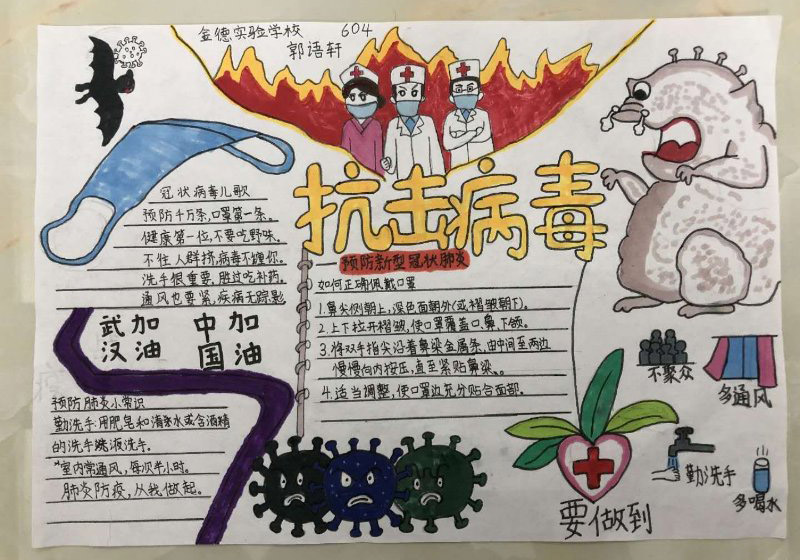 金德实验学校 604
郭语轩
抗击病毒
预防新型冠状肺炎
冠状病毒儿歌
预防千万条,口罩第一条。
健康第一位,不要吃野味。
不住人群挤,病毒不缠你。
洗手很重要,胜过吃补药。
通风也要紧,疾病无踪影
武汉 加油
中国 加油
预防肺炎小常识
勤洗手:用肥皂和清亲水或含酒精
的洗手 液洗手。
*室内常通风,每次半小时。
肺炎防疫,从我做起。
如何正确佩戴口罩
1.鼻尖侧朝上,深色面朝外(或褶皱朝下)。
2.上下拉开褶皱,使口罩覆盖口、鼻、下颌。
3.将双手指尖沿着鼻梁金属条,由中间至两边
慢慢向内按压,直至紧贴鼻梁。
4.适当调整,使口罩边充分贴合面部。
不聚众
多通风
勤洗手
多喝水
要做到